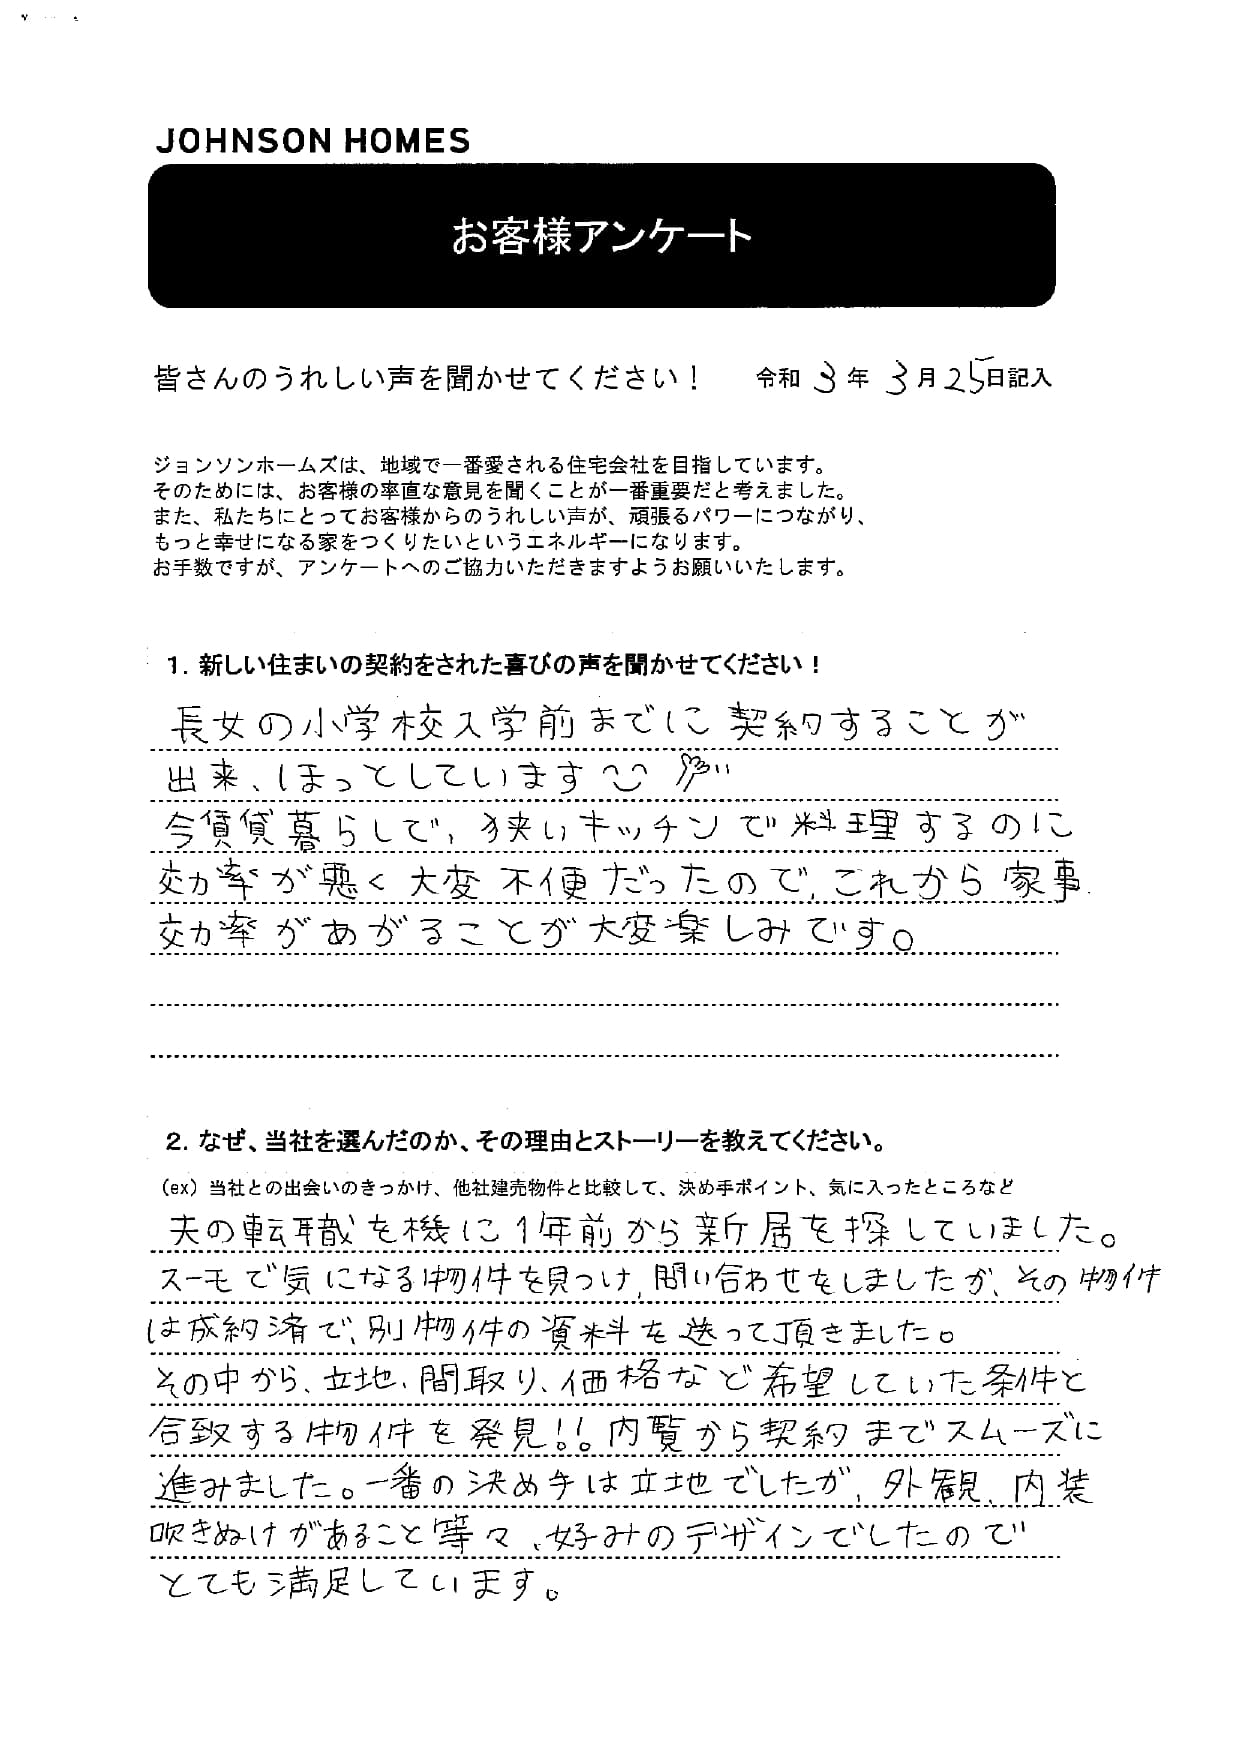 JOHNSON HOMES
お客様アンケート
皆さんのうれしい声を聞かせてください！ 令和 3 年 3 月 25 日記入
ジョンソンホームズは、地域で一番愛される住宅会社を目指しています。
そのためには、お客様の率直な意見を聞くことが一番重要だと考えました。
また、私たちにとってお客様からのうれしい声が、頑張るパワーにつながり、
もっと幸せになる家をつくりたいというエネルギーになります。
お手数ですが、アンケートへのご協力いただきますようお願いいたします。
1. 新しい住まいの契約をされた喜びの声を聞かせてください！
長女の小学校入学前までに契約することが
出来、ほっとしています
今賃貸暮らしで、狭いキッチンで料理するのに
効率が悪く大変不便だったので、これから家事
効率があがることが大変楽しみです。
2. なぜ、当社を選んだのか、その理由とストーリーを教えてください。
（ex）当社との出会いのきっかけ、他社建売物件と比較して、決め手ポイント、気に入ったところなど
夫の転職を機に1年前から新居を探していました。
スーモで気になる物件を見つけ、問い合わせをしましたが、その物件
は成約済で、別物件の資料を送って頂きました。
その中から、立地、間取り、価格など希望していた条件と
合致する物件を発見!! 内覧から契約までスムーズに
進みました。一番の決め手は立地でしたが、外観、内装
吹きぬけがあること等々、好みのデザインでしたので
とても満足しています。